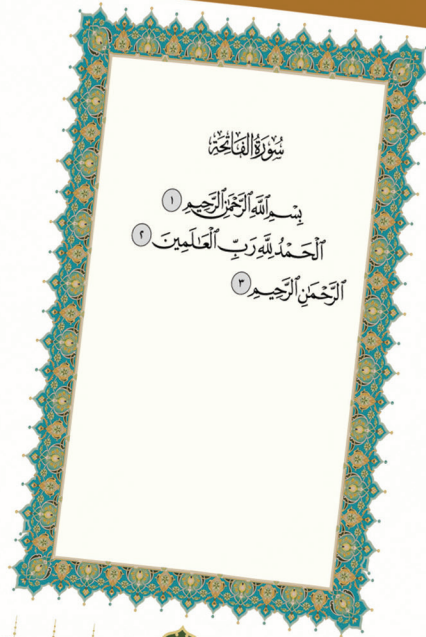 سُورَةُ الفَاتِحَة
بِسْمِ ٱللَّهِ ٱلرَّحْمَٰنِ ٱلرَّحِيمِ ١
ٱلْحَمْدُ لِلَّهِ رَبِّ ٱلْعَٰلَمِينَ ٢
ٱلرَّحْمَٰنِ ٱلرَّحِيمِ ٣